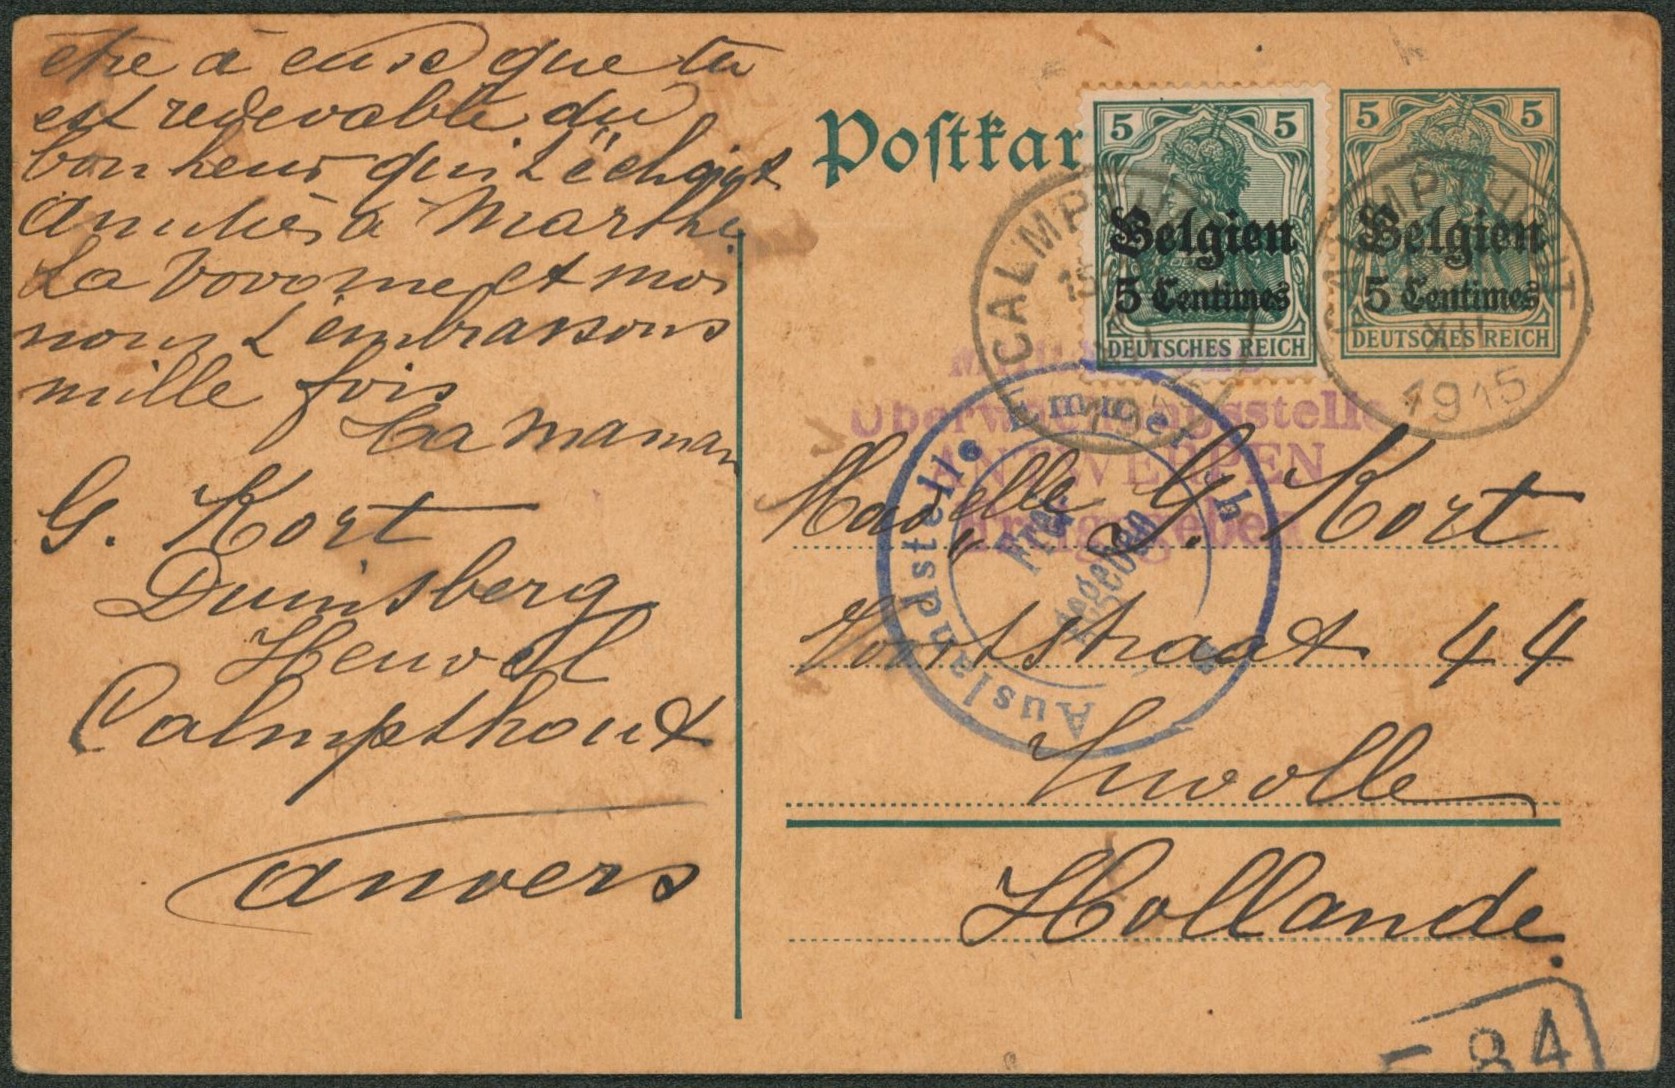 être à eux que tu
est redevable du
bonheur qui t'échoit
à Marthe.
La bononne et moi
nous t'embrassons
mille fois
La maman
G. Kort
Duinsberg
Heuvel
Calmpthout
Anvers
Postkar
5 5
Belgien
5 Centimes
DEUTSCHES REICH
5 5
Belgien
5 Centimes
DEUTSCHES REICH
CALMPTHOUT
1915
CALMPTHOUT
XII
1915
Überwachungsstelle
ANTWERPEN
Freigegeben
Auslandstelle Emmerich
Freigegeben
Madelle G. Kort
44
Zwolle
Hollande.
84